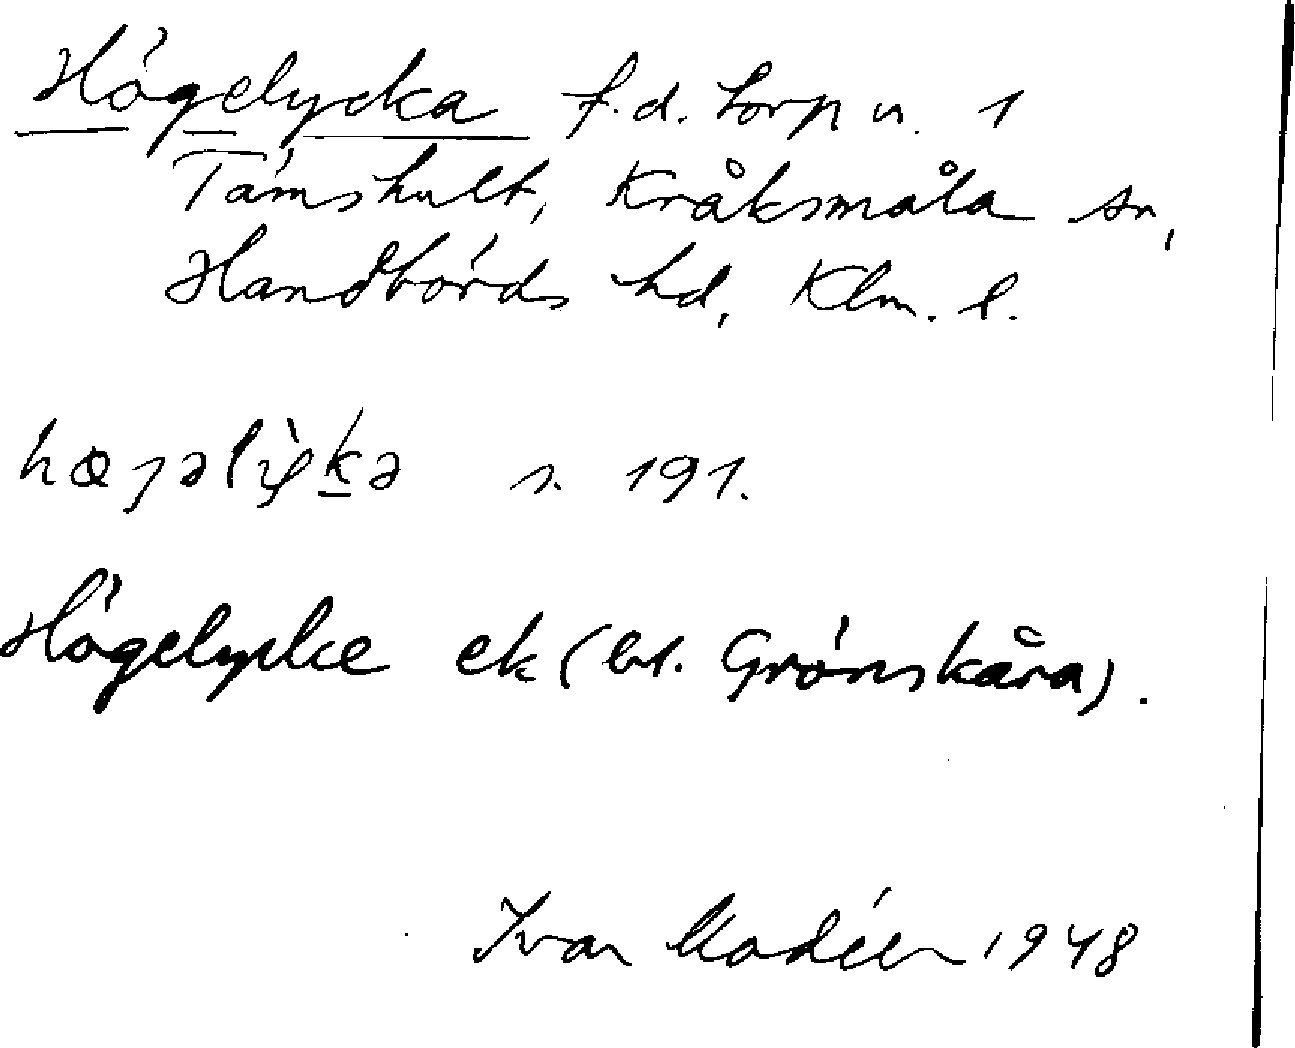 Högelycka f.d. torp u. 1
Tämshult, Kråksmåla sn,
Handbörds hd, Klm. l.
s. 191.
Högelycke ek (bl. Grönskåra).
Ivar Modéer 1948